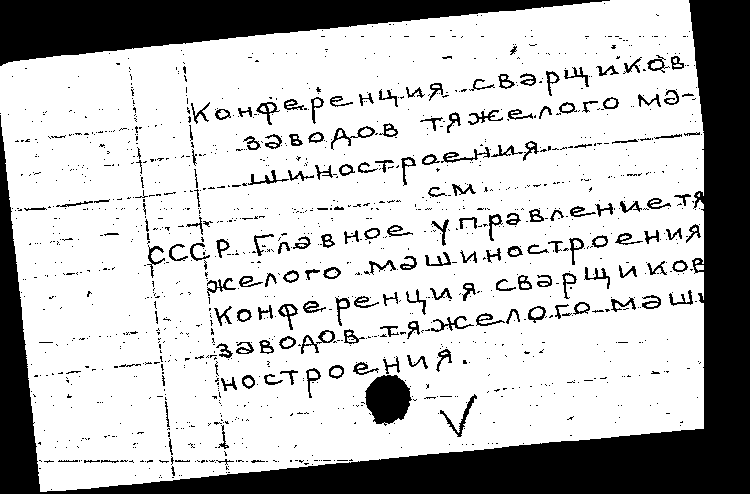 Конференция сварщиков
заводов тяжелого ма-
шиностроения.
см.
СССР Главное управление тя
желого машиностроения
Конференция сварщиков
заводов тяжелого маши
ностроения.